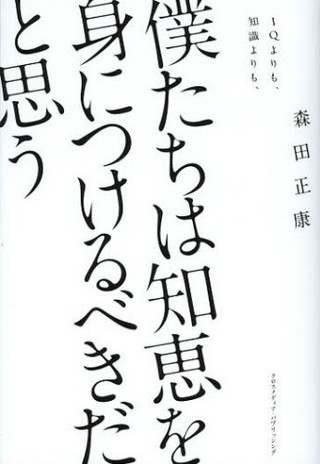 森田正康
IQよりも、
知識よりも、
僕たちは知恵を
身につけるべきだ
と思う
クロスメディア・パブリッシング